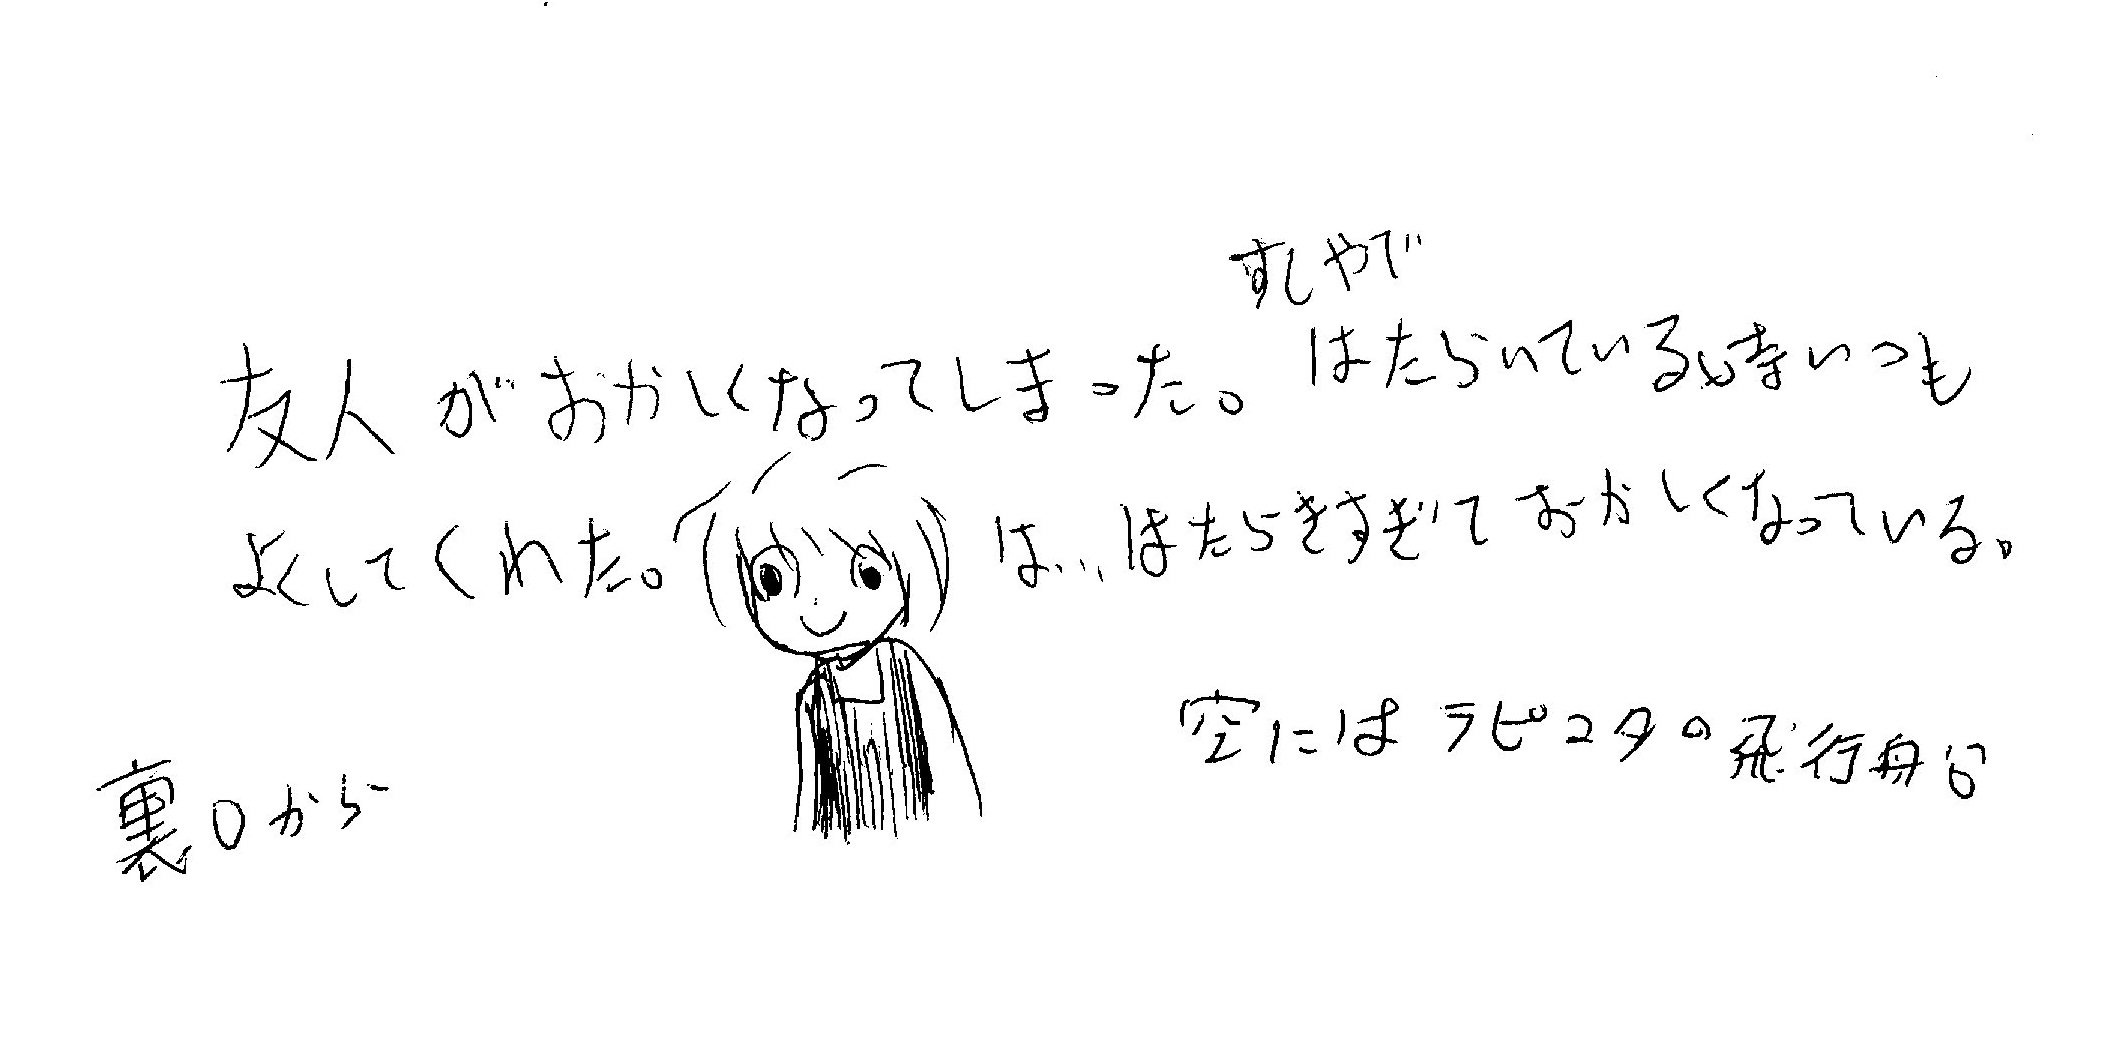 すしやで
友人がおかしくなってしまった。はたらいている時いつも
よくしてくれた。は...はたらきすぎておかしくなっている。
空にはラピュタの飛行船
裏口から